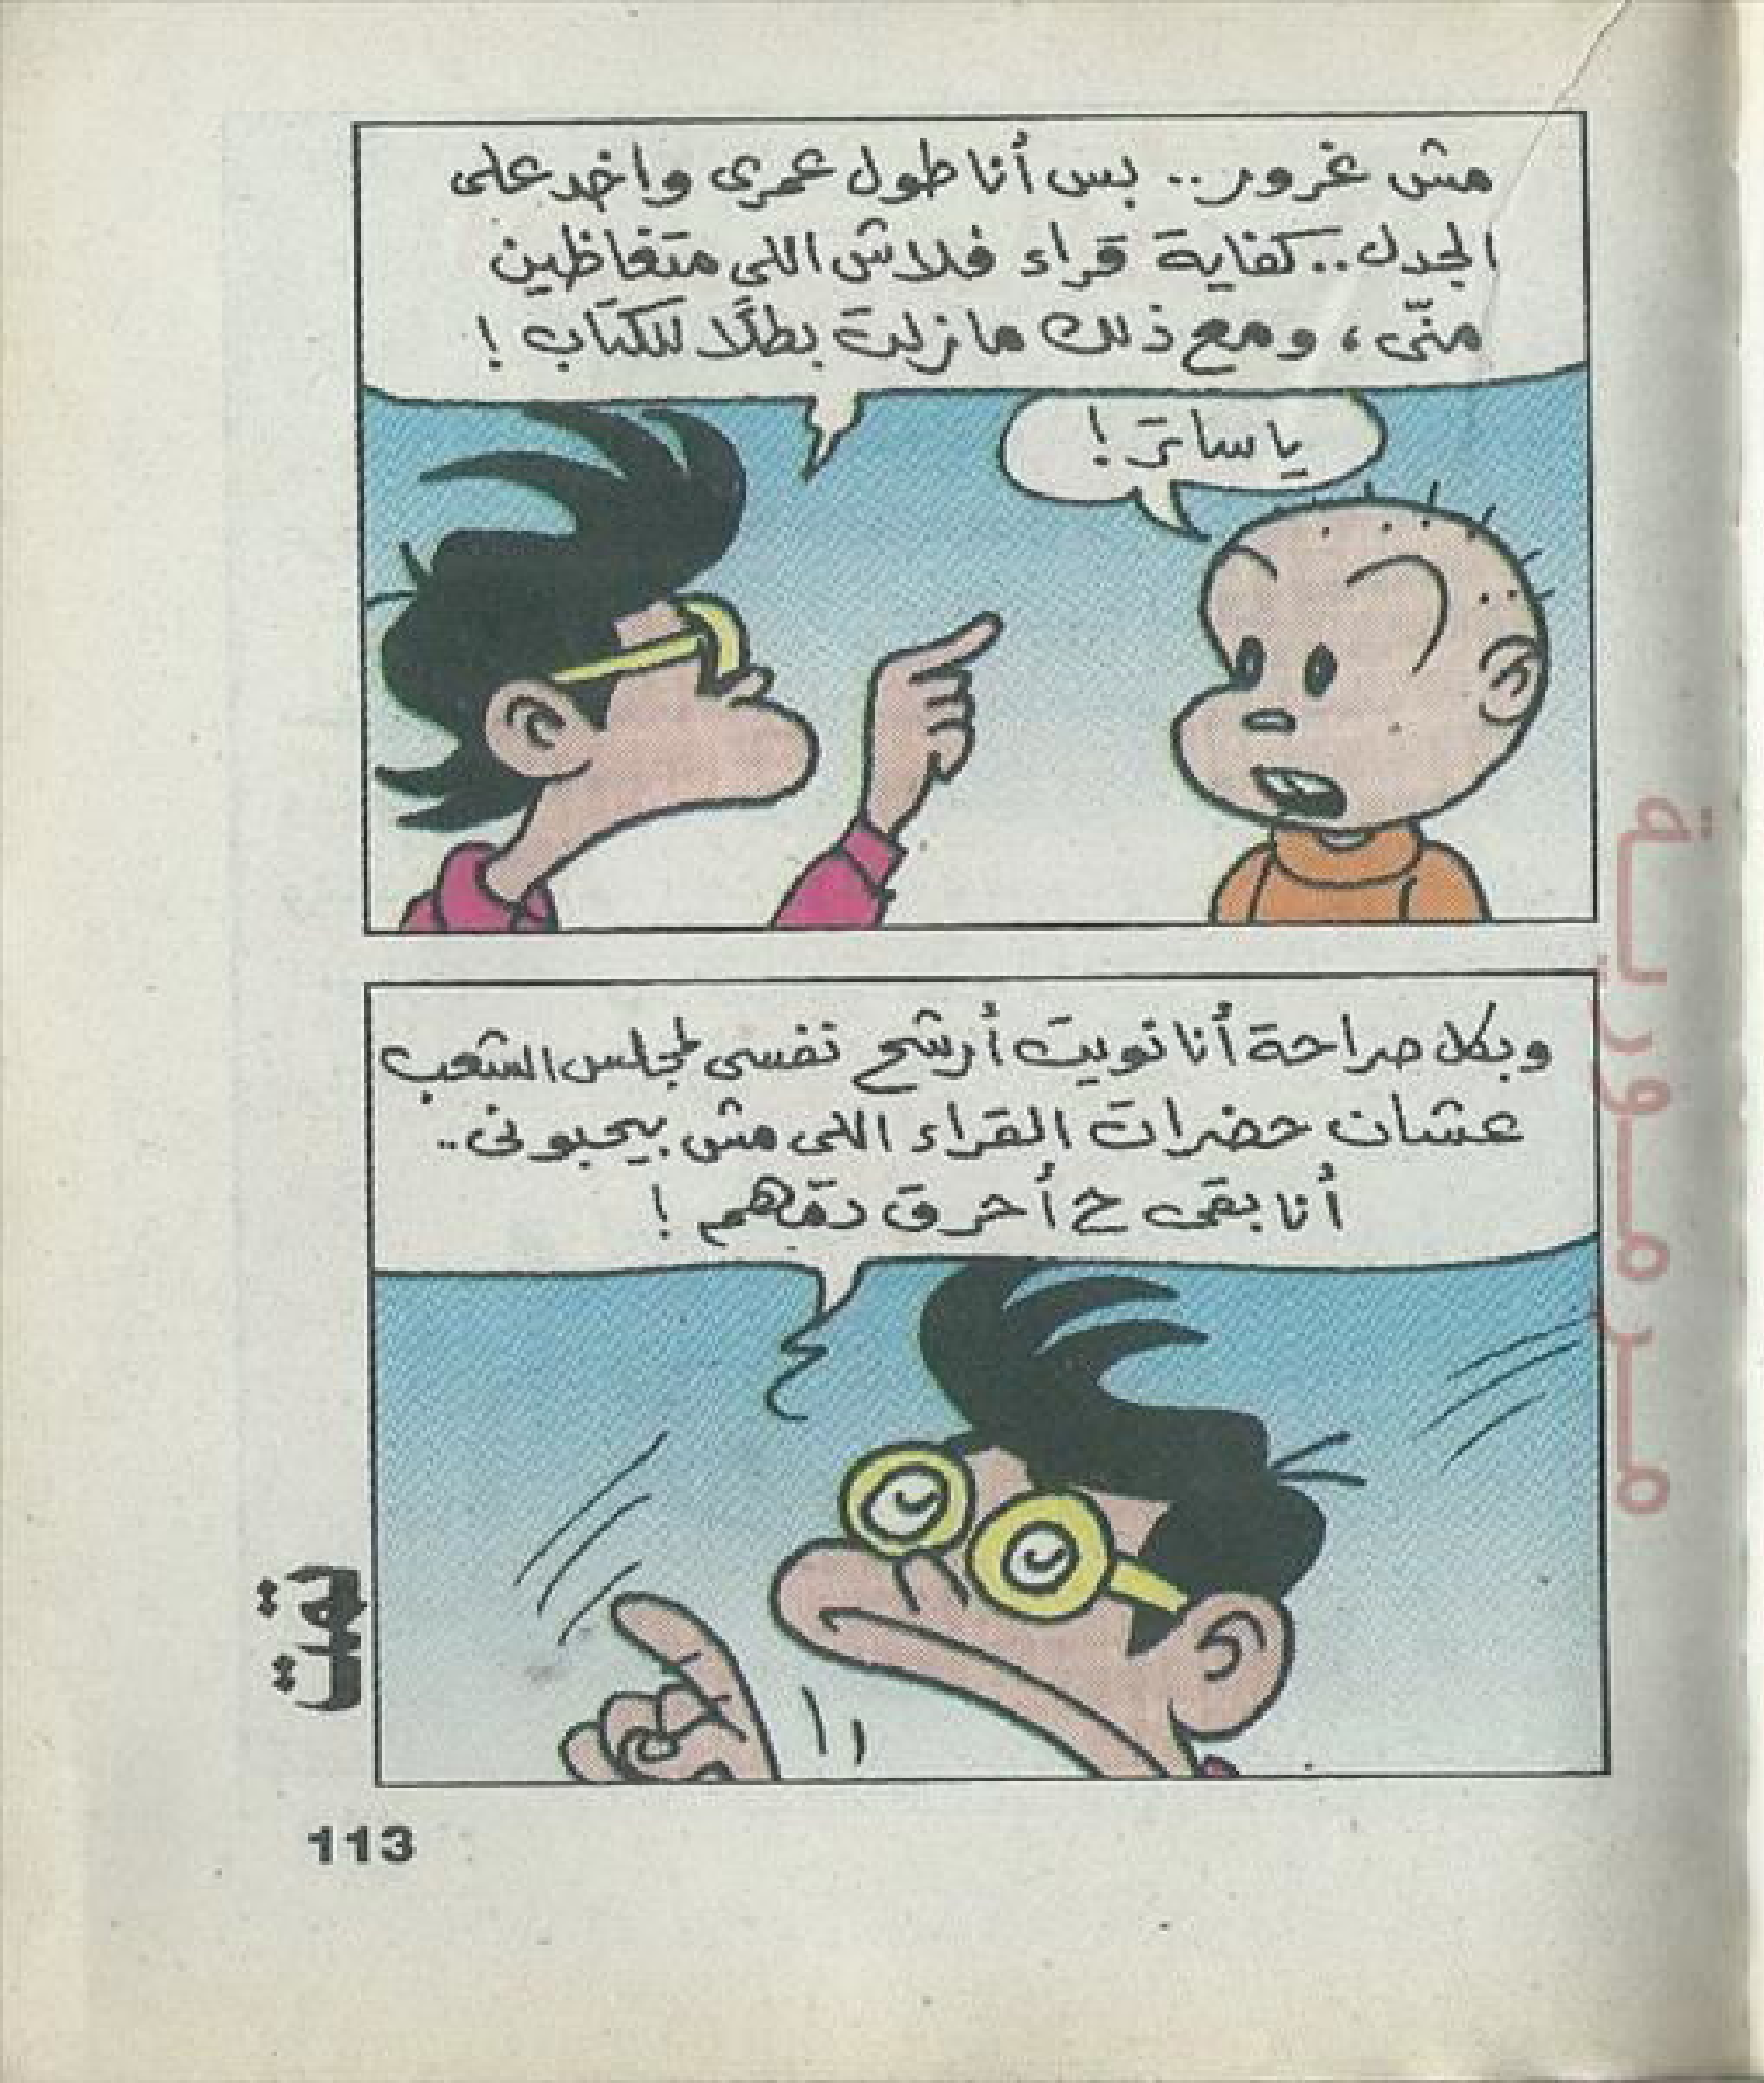 مش غرور.. بس أنا طول عمرى واخد على
الجدل.. كفاية قراء فلاش اللى متغاظين
منّى، ومع ذلك مازلت بطلًا للكتاب!
يا ساتر!
وبكل صراحة أنا نويت أرشح نفسى لمجلس الشعب
عشان حضرات القراء اللى مش بيحبونى..
أنا بقى ح أحرق دمّهم!
تمت
113
مرمورية